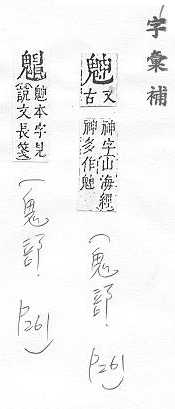 字彙補
䰠 又古神字山海經
神多作䰠
（鬼部．P261）
䰠本字見
說文長箋
（鬼部．P261）